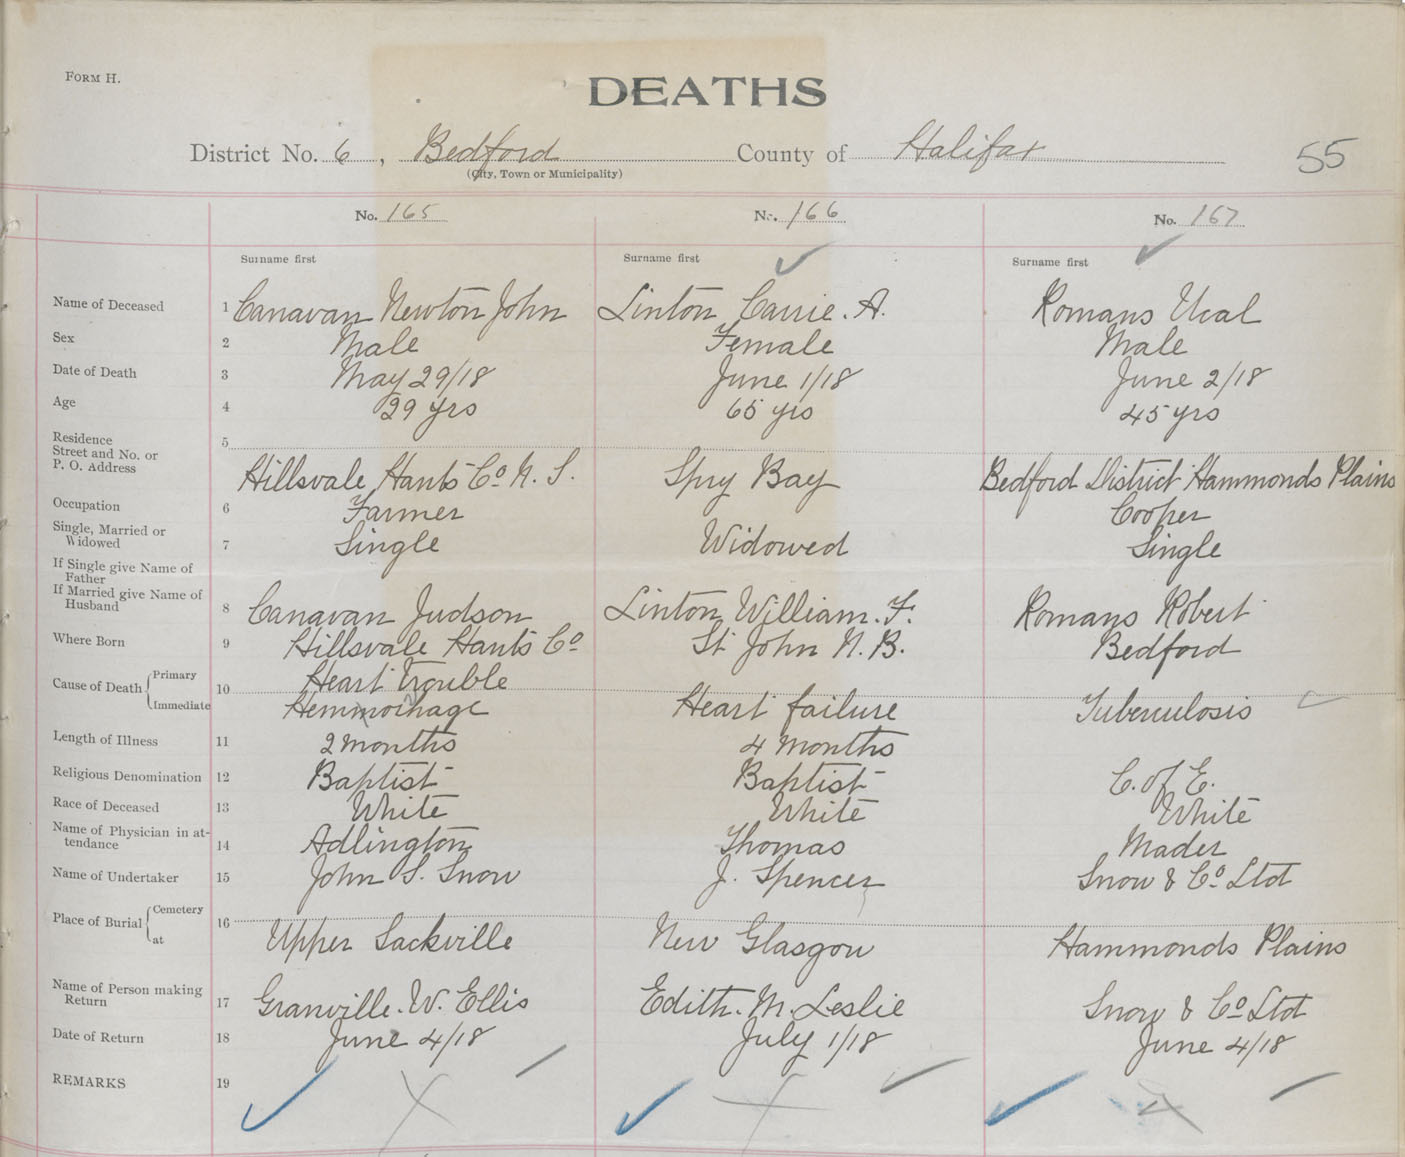 FORM H.
DEATHS
District No. 6, Bedford County of Halifax 55
(City, Town or Municipality)
No. 165 No. 166 No. 167
Surname first Surname first Surname first
Name of Deceased 1 Canavan Newton John Linton Carrie. A. Romans Ucal
Sex 2 Male Female Male
Date of Death 3 May 29/18 June 1/18 June 2/18
Age 4 29 yrs 65 yrs 45 yrs
Residence 5
Street and No. or
P. O. Address Hillsvale Hants Co N. S. Spry Bay Bedford District Hammonds Plains
Occupation 6 Farmer Cooper
Single, Married or
Widowed 7 Single Widowed Single
If Single give Name of
Father
If Married give Name of
Husband 8 Canavan Judson Linton William. F. Romans Robert
Where Born 9 Hillsvale Hants Co St John N. B. Bedford
Cause of Death Primary 10 Heart Trouble
Immediate Hemmorhage Heart failure Tuberculosis
Length of Illness 11 2 months 4 months
Religious Denomination 12 Baptist Baptist C. of E.
Race of Deceased 13 White White White
Name of Physician in at-
tendance 14 Adlington Thomas Mader
Name of Undertaker 15 John S. Snow J. Spencer Snow & Co Ltd
Place of Burial Cemetery 16
at Upper Sackville New Glasgow Hammonds Plains
Name of Person making
Return 17 Granville. W. Ellis Edith. M. Leslie Snow & Co Ltd
Date of Return 18 June 4/18 July 1/18 June 4/18
REMARKS 19